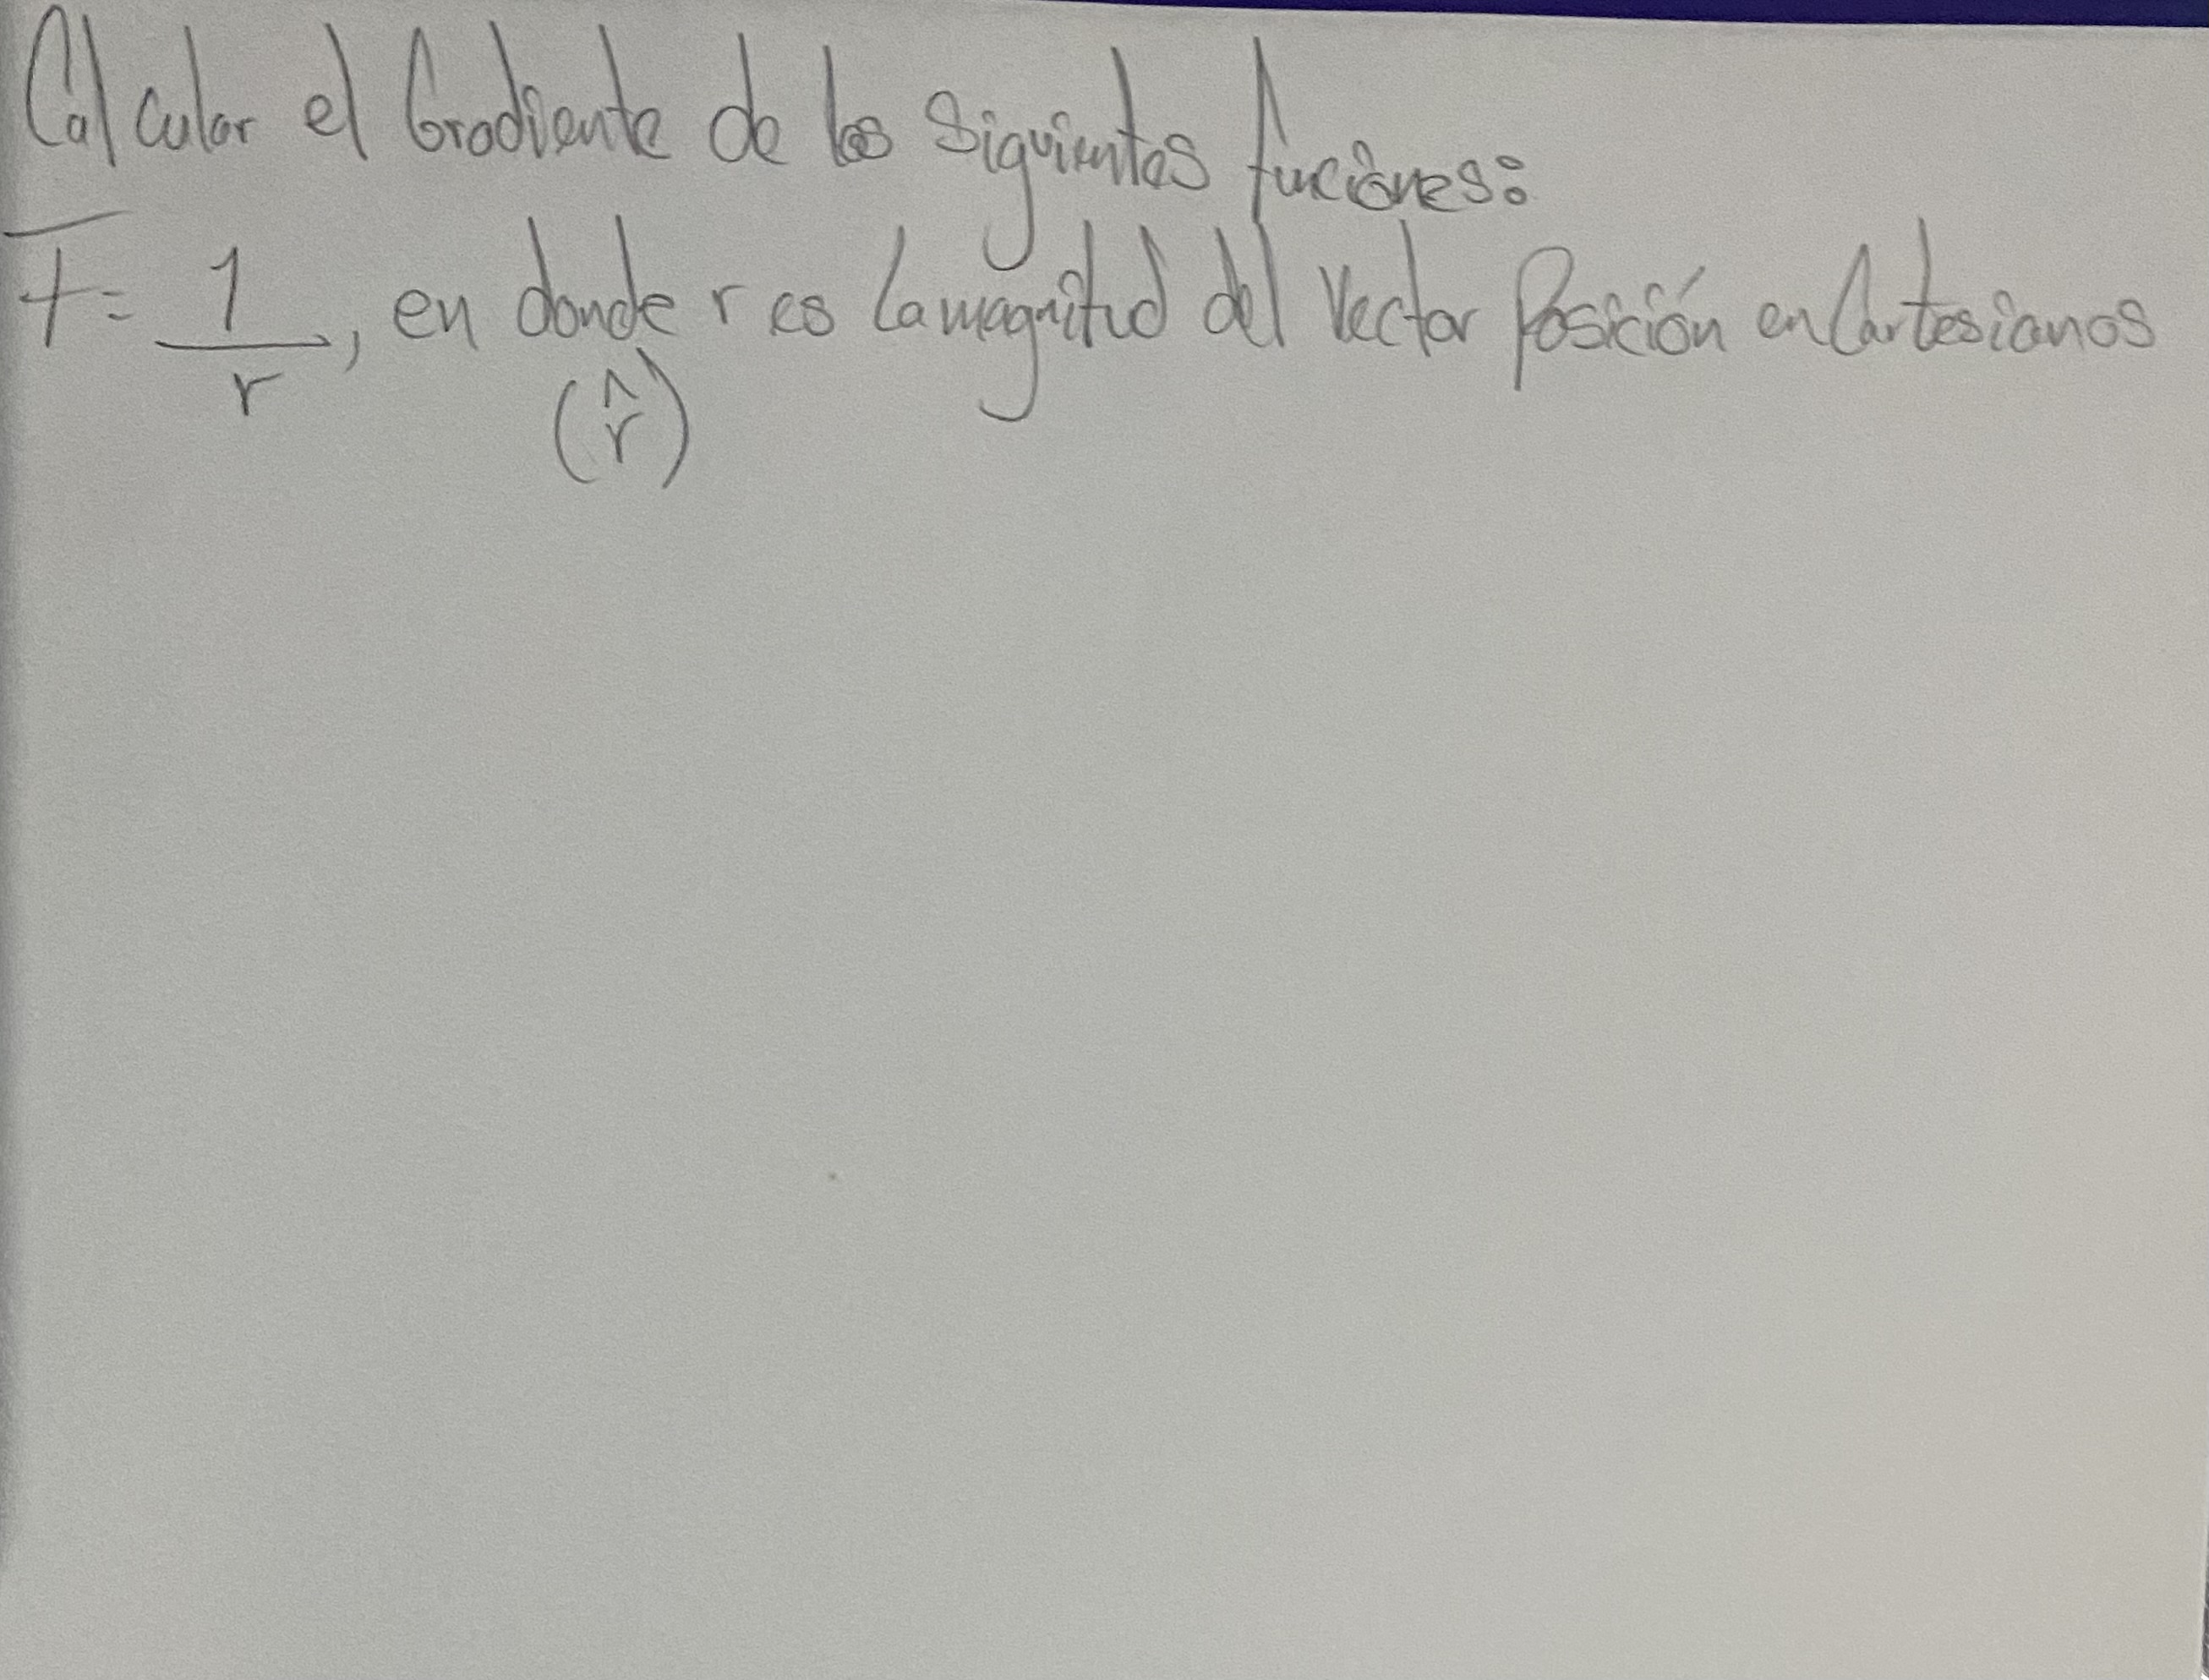 Calcular el Gradiente de las siguientes funciones:
f = 1/r, en donde r es la magnitud del vector Posición en Cartesianas
(r̂)